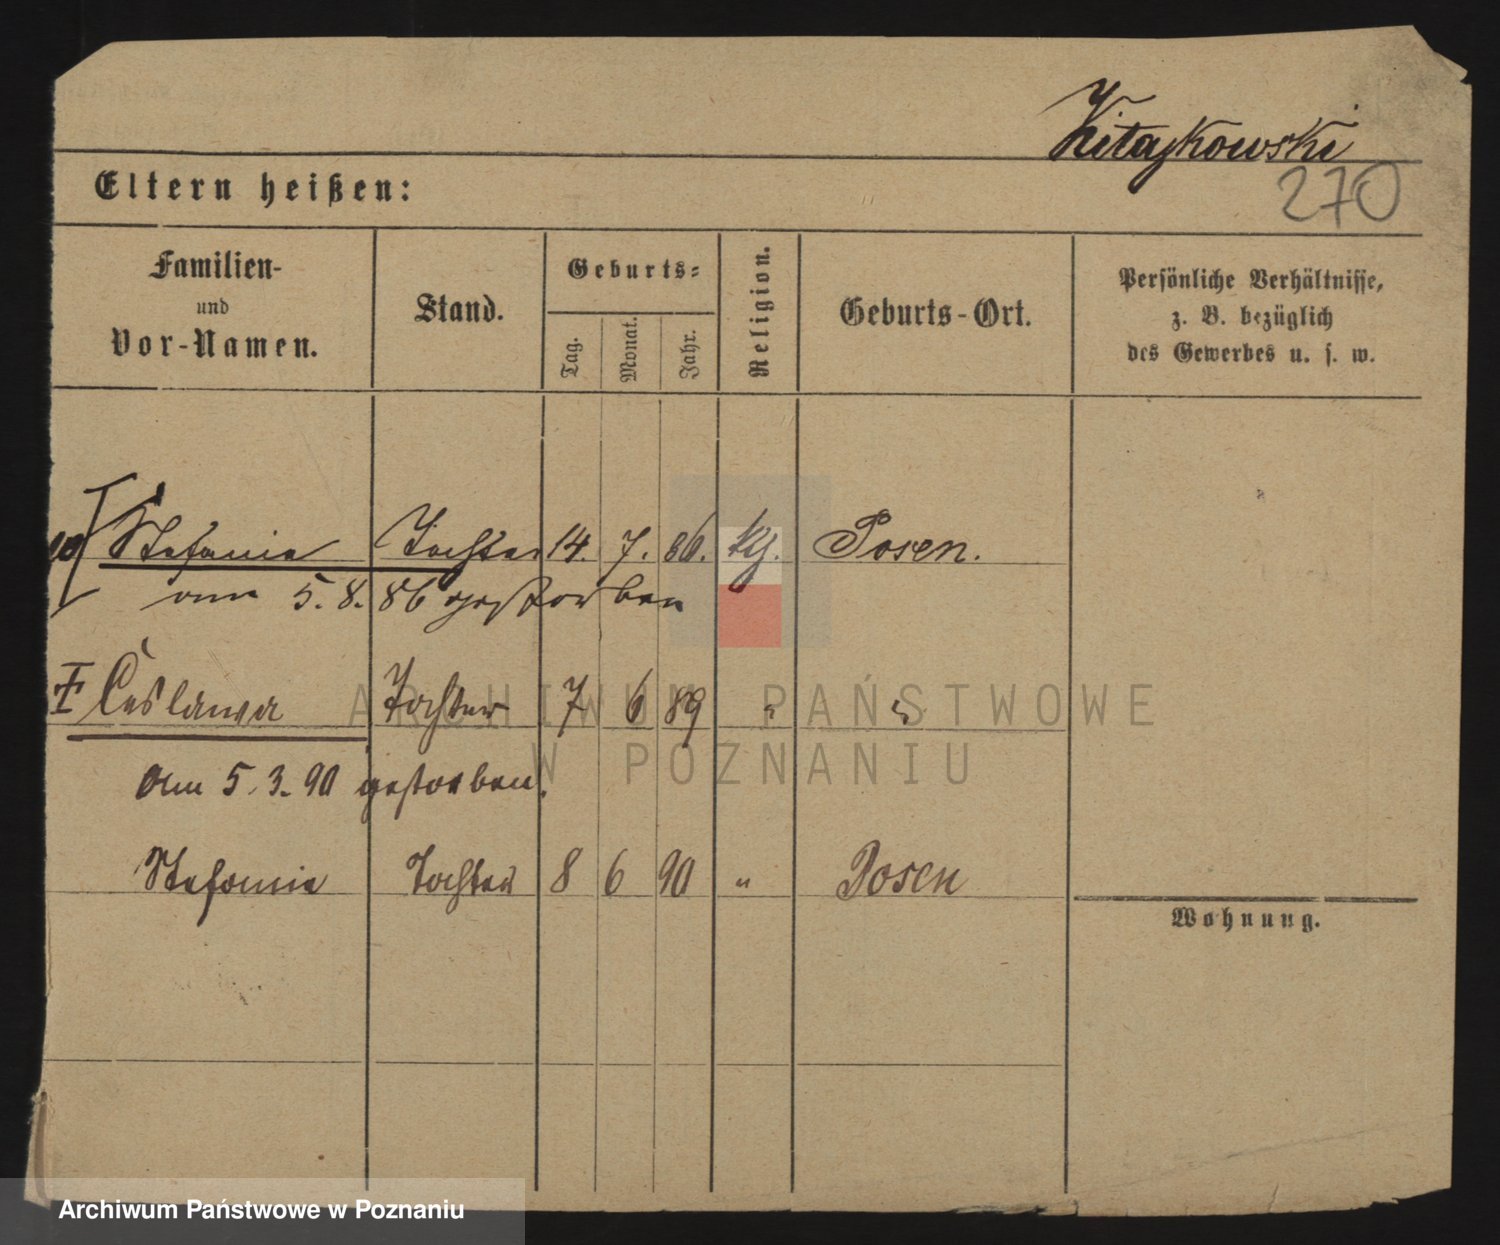 Kitajkowski
270
Eltern heißen:
Familien-
und
Vor-Namen.
Stand.
Geburts-
Tag.
Monat.
Jahr.
Religion.
Geburts-Ort.
Persönliche Verhältnisse,
z. B. bezüglich
des Gewerbes u. s. w.
Stefanie Tochter 14. 7. 86. kg. Posen.
am 5. 8. 86 gestorben
Ceslawa Tochter 7 6 89 " "
am 5. 3. 90 gestorben.
Stefanie Tochter 8 6 90 " Posen
Wohnung.
ARCHIWUM PAŃSTWOWE
W POZNANIU
Archiwum Państwowe w Poznaniu